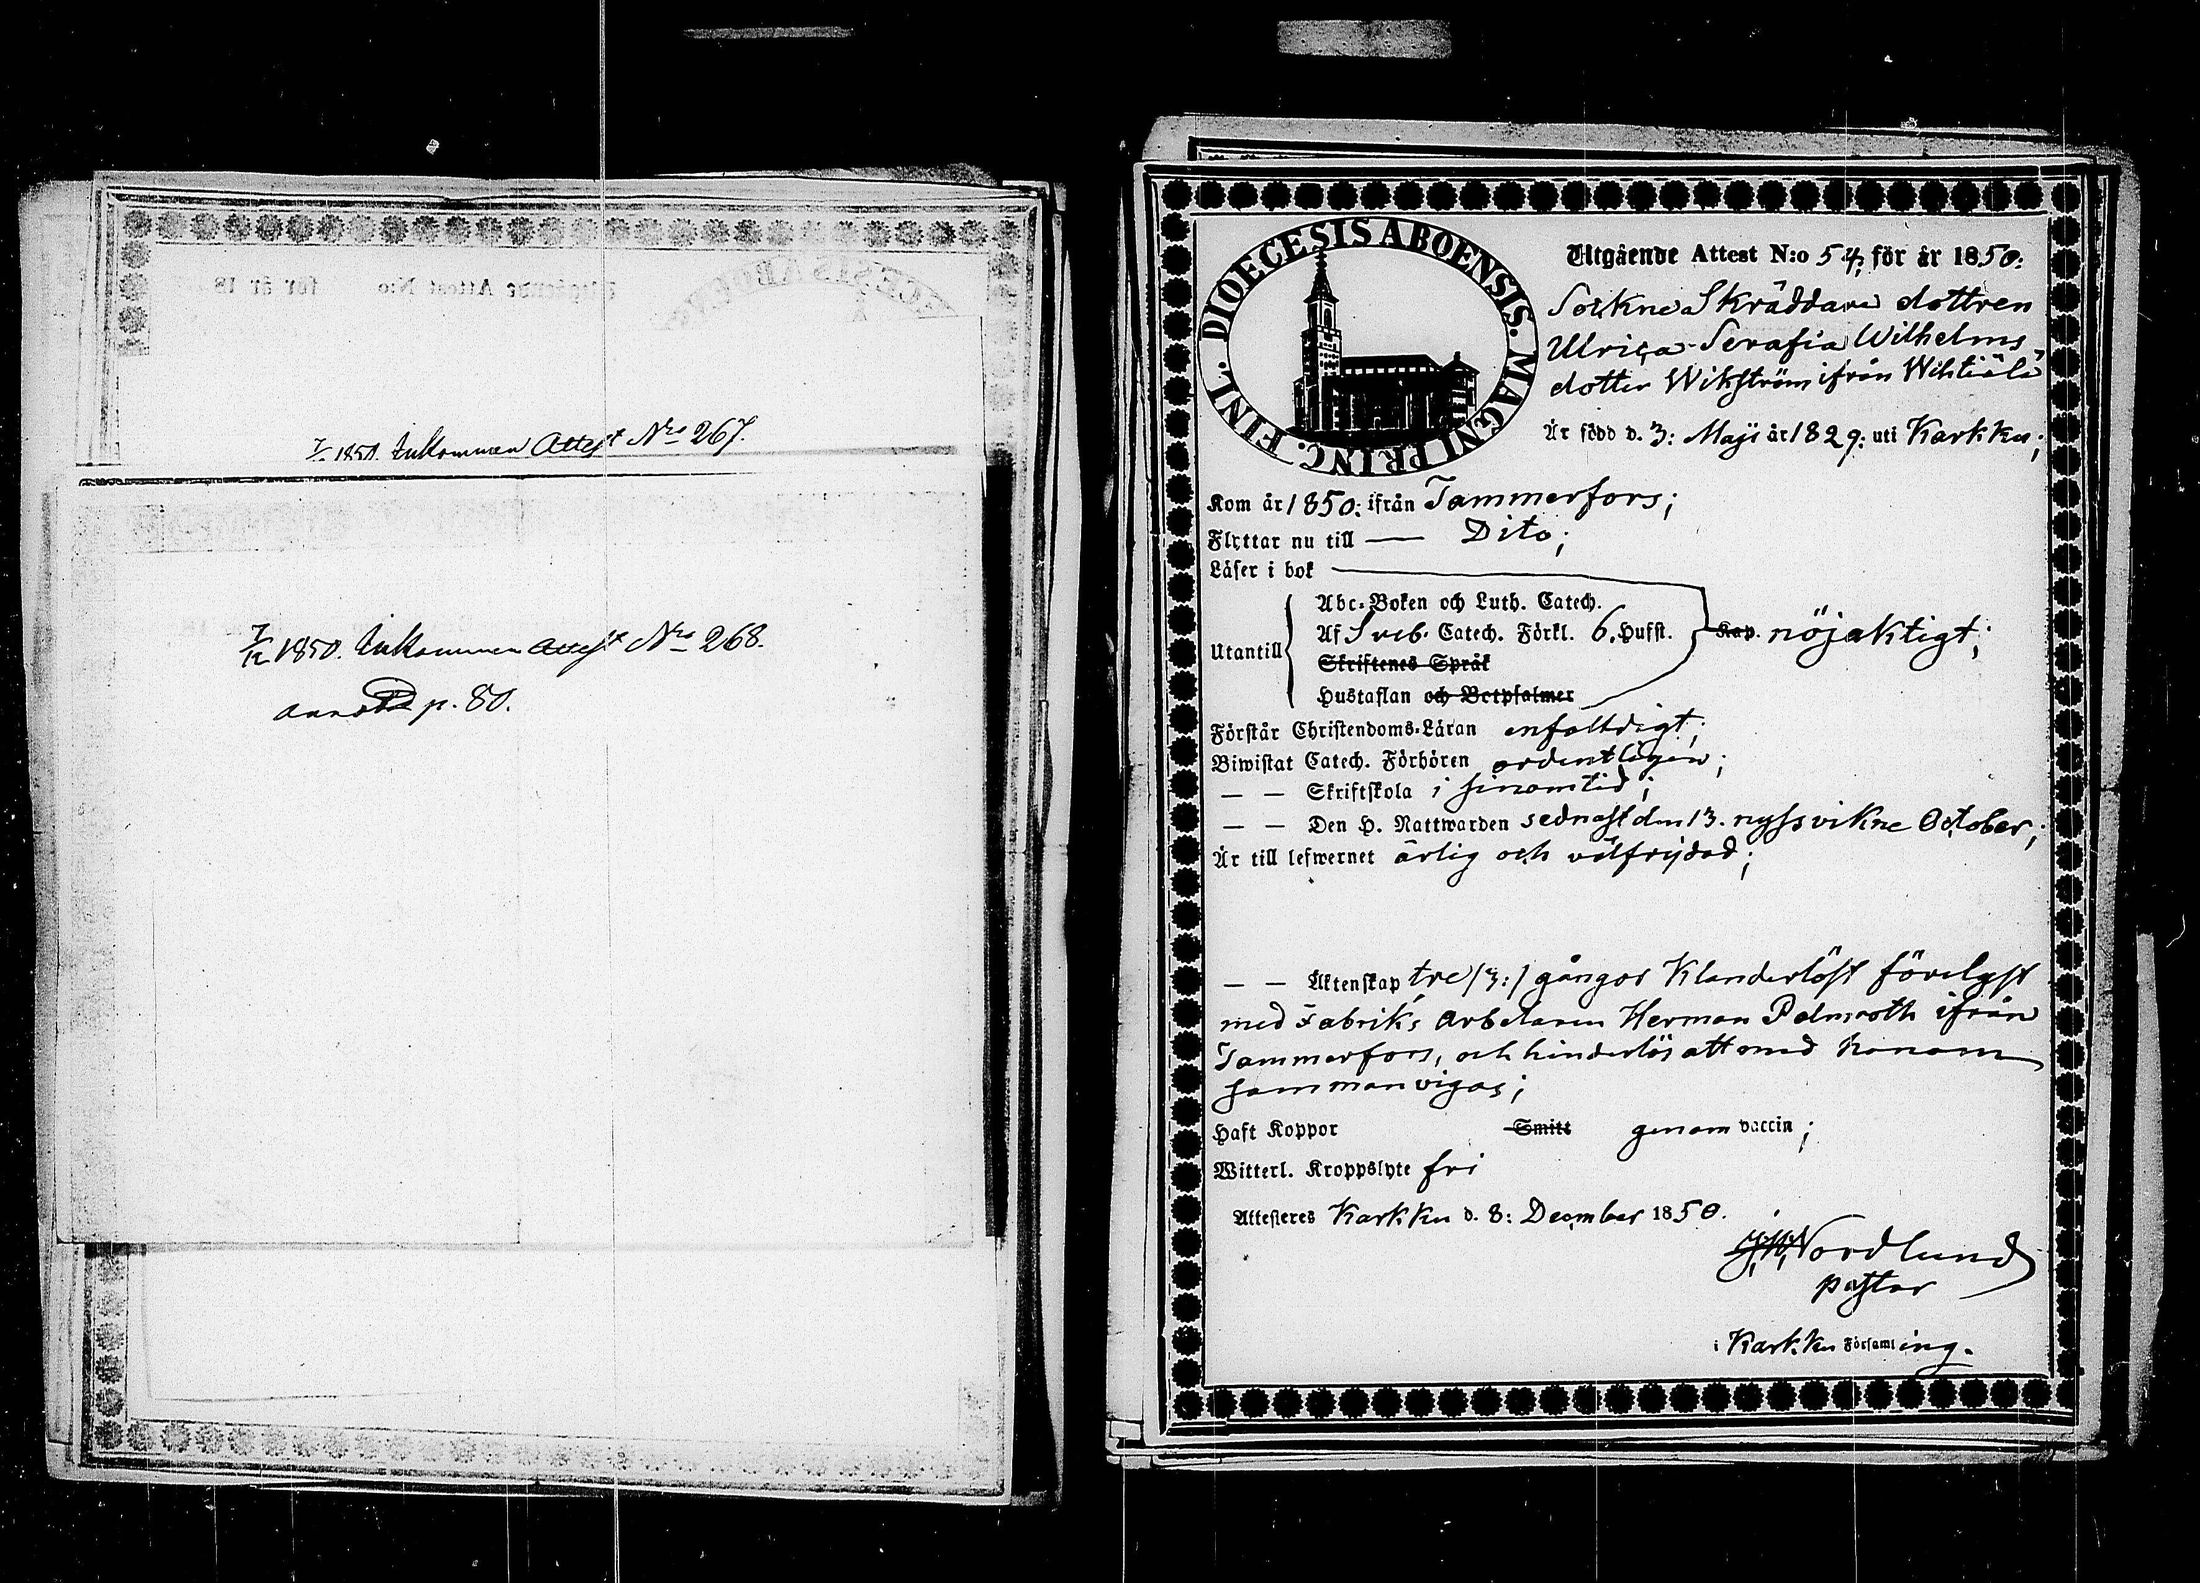 1850. Inkommen Attest Nro 267.
7/12 1850. Inkommen Attest Nro 268.
p. 80.
DIOECESIS ABOENSIS. MAGNI PRINC. FINL.
Utgående Attest N:o 54: för år 1850:
Sockne Skräddare dottren
Ulrica Serafia Wilhelms
dotter Wikström ifrån Wihtiälä
Är född d. 3: Maji år 1829: uti Karkku;
Kom år 1850: ifrån Tammerfors;
Flyttar nu till — Dito;
Läser i bok
Utantill
Abc-Boken och Luth. Catech.
Af Sveb. Catech. Förkl. 6. Hufst. Kap. nöjaktigt;
Skriftenes Språk
Hustaflan och Botpsalmer
Förstår Christendoms-Läran enfaldigt;
Biwistat Catech. Förhören ordentligen;
— — Skriftskola i sinom tid;
— — Den H. Nattwarden sednast den 13. nyssvikne October;
Är till lefwernet ärlig och välfrijdad;
— — Äktenskap tre /3:/ gångor Klanderlöst förelyst
med Fabriks Arbetaren Herman Palmroth ifrån
Tammerfors, och hinderlös att med honom
sammanvigas;
Haft Koppor Smitt genom vaccin;
Witterl. Kroppslyte fri
Attesteras Karkku d. 8: December 1850.
Nordlund
pastor
i Karkku Församling.